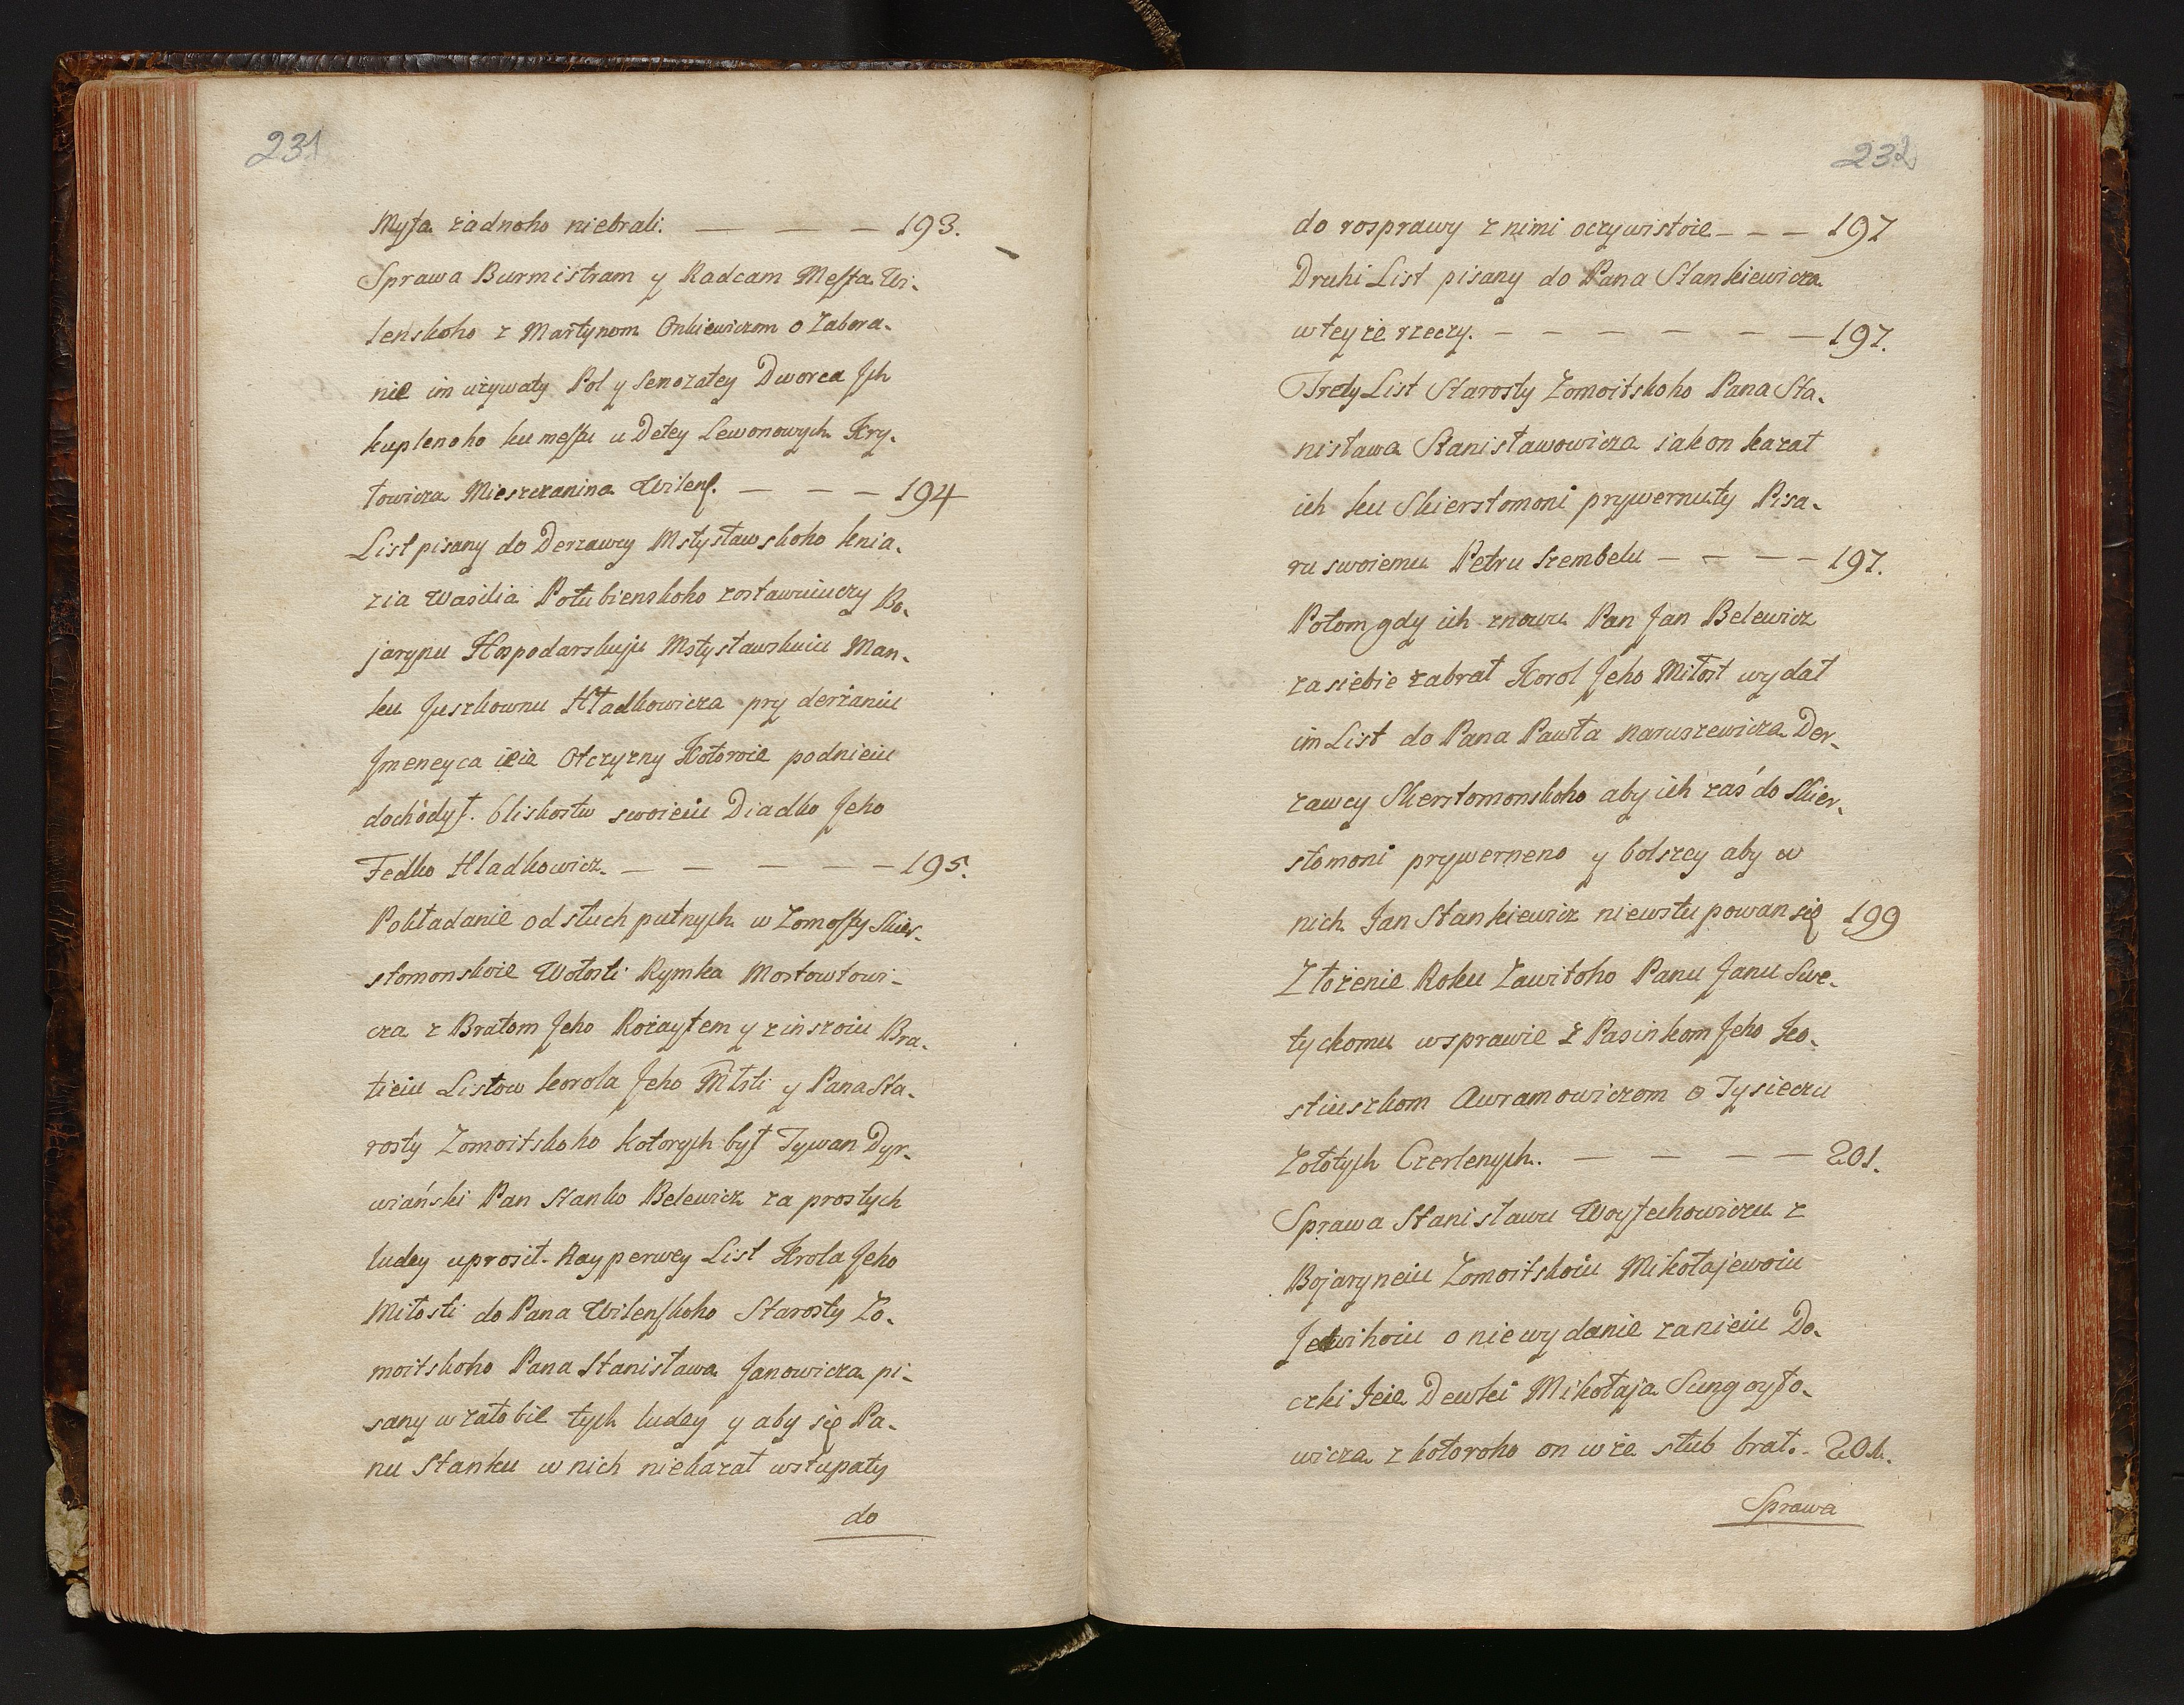 231
Myta żadnoho niebrali. — — — 193.
Sprawa Burmistram y Radcam Mesta Wi-
lenskoho z Martynom Onkiewiczom o Zabora-
nie im używaty Pol y Senożatey Dworca Jch
kuplenoho ku mestu u Detey Lewonowych Kry-
towicza Mieszczanina Wilens. — — — 194
List pisany do Derzawcy Mstysławskoho knia-
zia Wasilia Połubienskoho zostawuiuczy Bo-
jarynu Hospodarskuju Mstysławskuiu Man-
ku Juszkownu Hładkowicza pry derżaniu
Jmeneyca ieie Otczyzny Kotoroie podnieiu
dochodył bliskostu swoieiu Diadko Jeho
Fedko Hladkowicz. — — — — — 195.
Pokładanie od słuch putnych w Zomoyty Skier-
stomonskoie Wołosti Rymka Mostowtowi-
cza z Bratom Jeho Rożaytem y zinszoiu Bra-
tieiu Listow korola Jeho Młsti y Pana Sta-
rosty Zomoitskoho kotorych był Tywan Dyr-
wiański Pan Stanko Belewicz za prostych
ludey uprosił. Nayperwey List Krola Jeho
Miłosti do Pana Wilenskoho Starosty Zo-
moitskoho Pana Stanisława Janowicza pi-
sany w załobie tych ludey y aby się Pa-
nu Stanku w nich niekazał wstupaty
do
232
do rosprawy z nimi oczywistoie — — — 197
Druhi List pisany do Pana Stankiewicza
wteyże rzeczy. — — — — — — 197.
Trety List Starosty Zomoitskoho Pana Sta-
nisława Stanisławowicza iak on kazał
ich ku Skierstomoni prywernuty Pisa-
ru swoiemu Petru Szembelu — — — — 197.
Potom gdy ich znowu Pan Jan Belewicz
za siebie zabrał Korol Jeho Miłost wydał
im List do Pana Pawła Naruszewicza Der-
zawcy Skerstomonskoho aby ich zaś do Skier-
stomoni prywerneno y bolszey aby w
nich Jan Stankiewicz niewstupowan się 199
Złożenie Roku Zawitoho Panu Janu Swe-
tyckomu wsprawie z Pasinkom Jeho Ko-
stiuszkom Awramowiczom o Tysieczu
Zołotych Czerlenych. — — — — 201.
Sprawa Stanisławu Woytechowiczu z
Bojaryneiu Zomoitskoiu Mikołajewoiu
Jedwihoiu o niewydanie zanieiu Do-
czki Jeie Dewki Mikołaja Sungoyło-
wicza z kotoroho on wże słub brał. - 201.
Sprawa